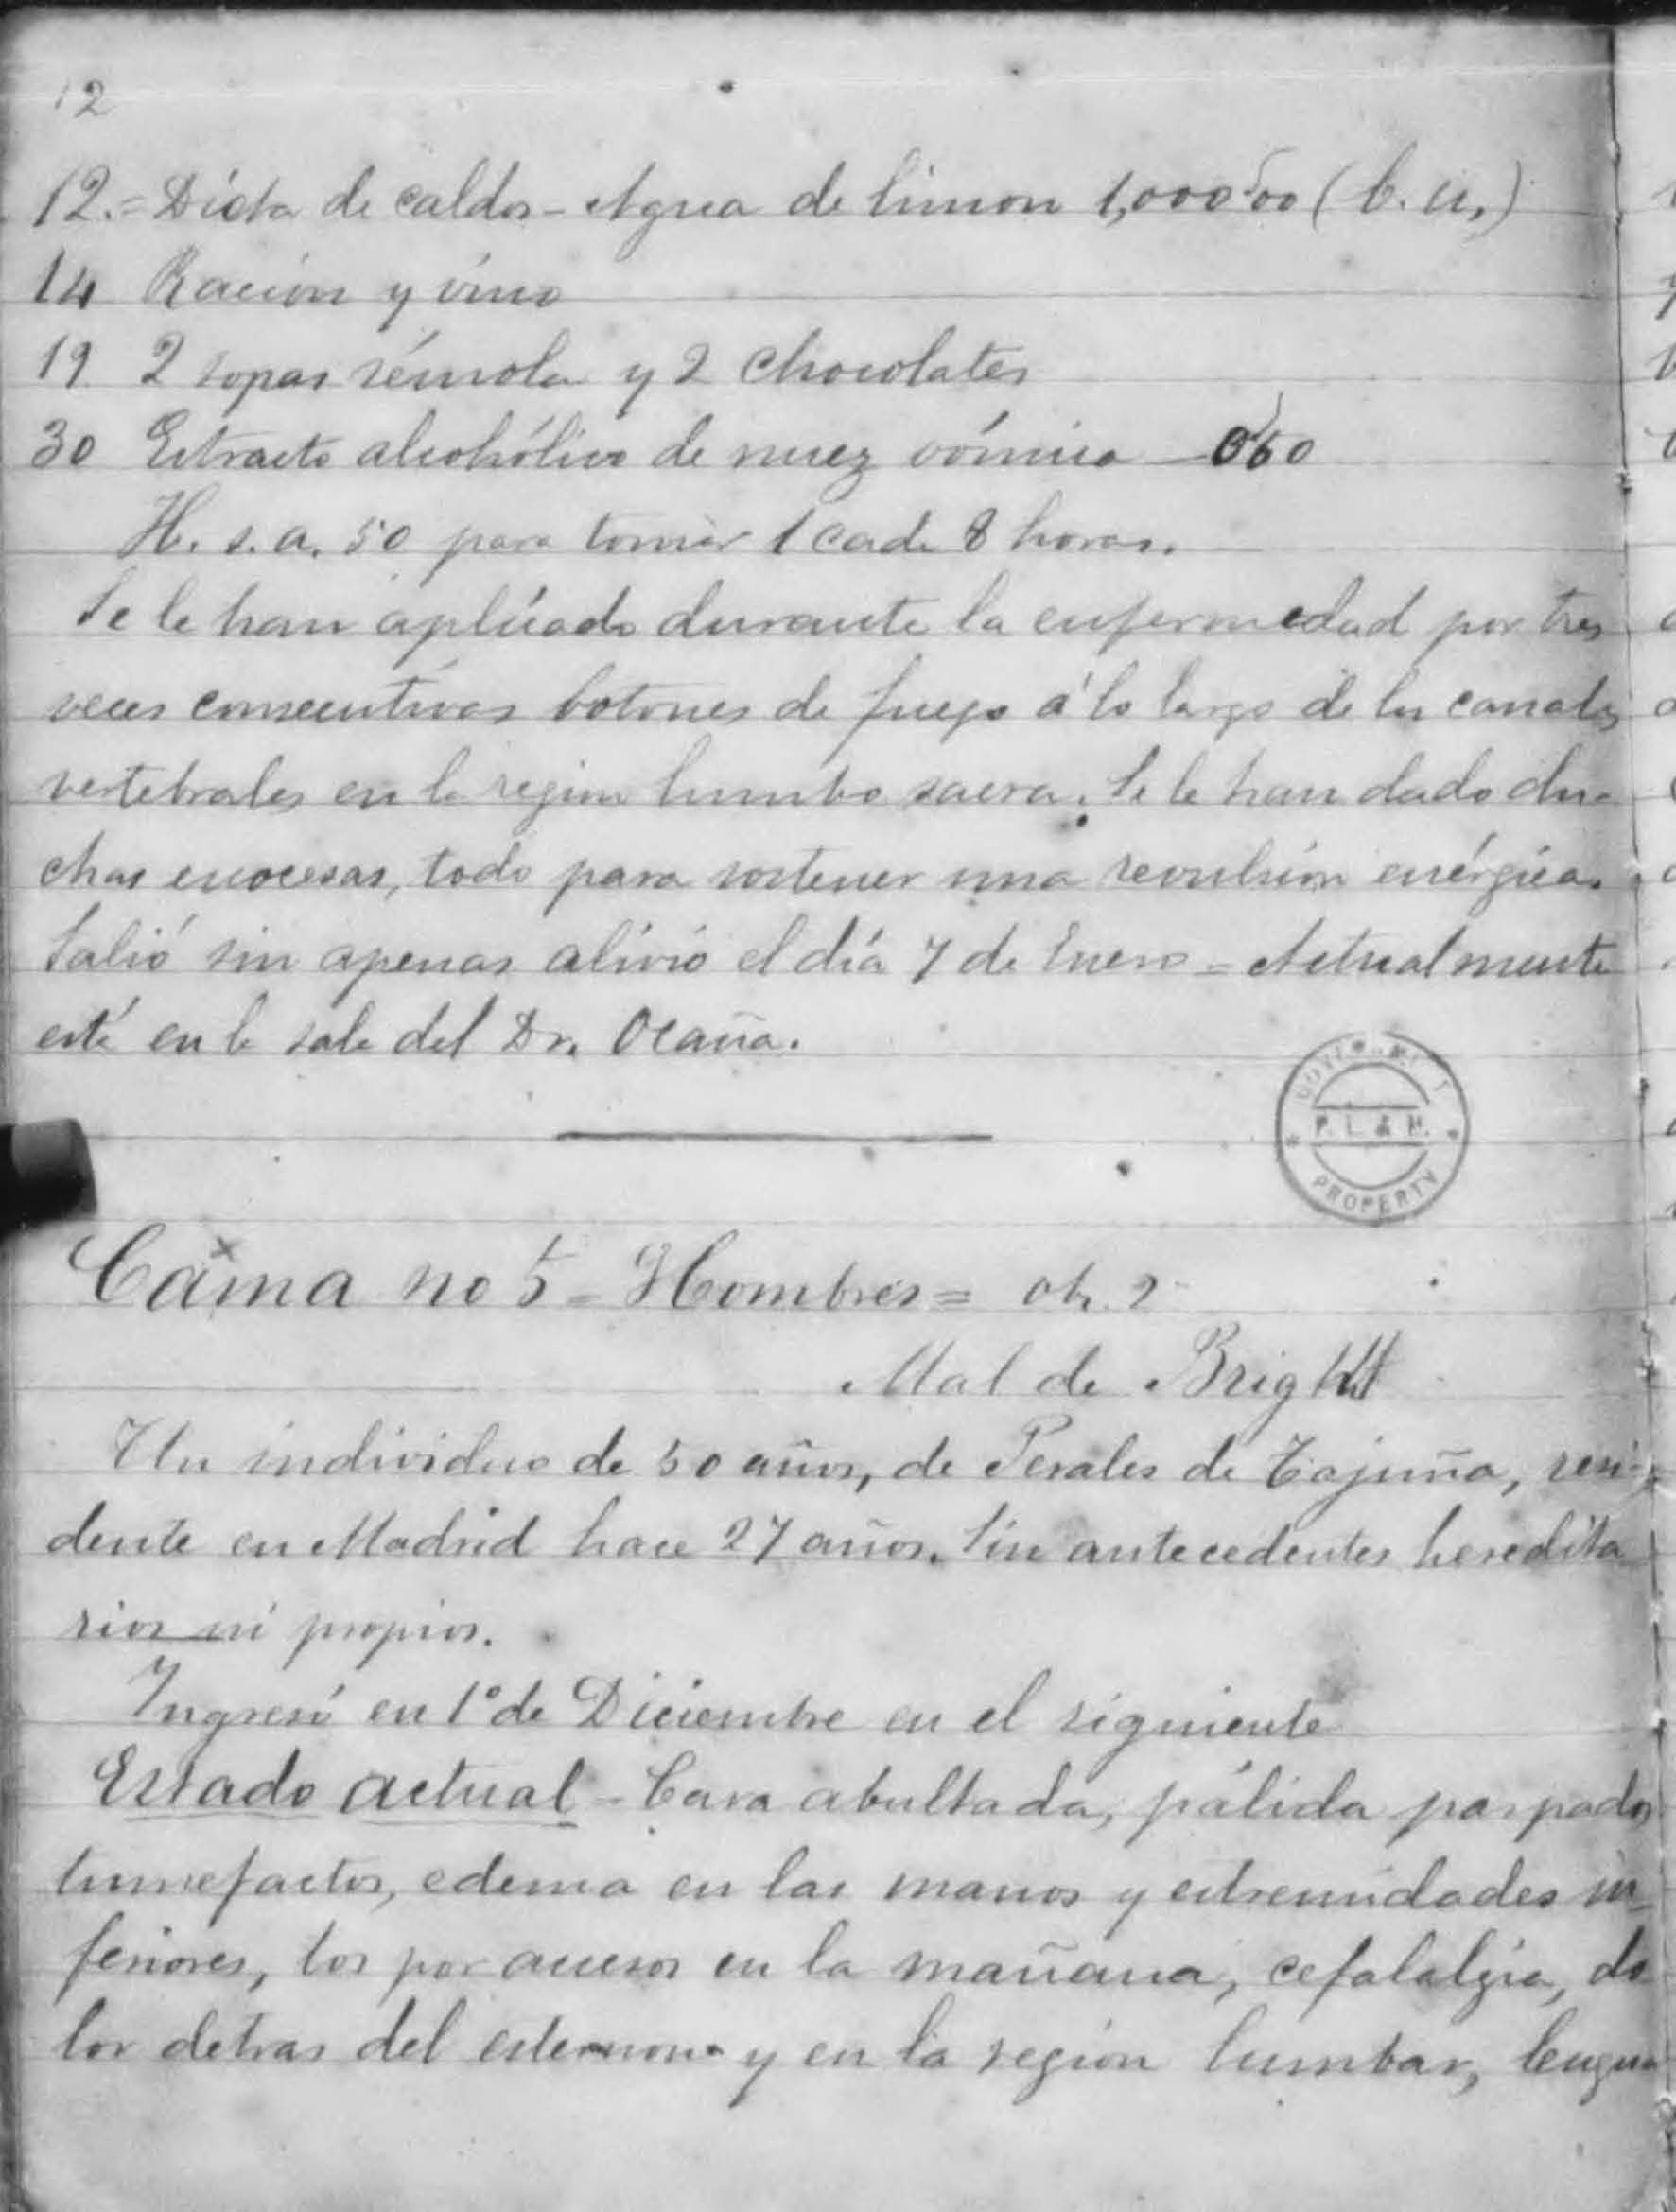 12
12.= Dieta de caldos - Agua de limon 1,000'00 (b. u,)
14 Ración y vino
19 2 sopas sémola y 2 chocolates
30 Estracto alcohólico de nuez vómica — 0'50
H. s. a. 50 para tomar 1 cada 8 horas.
Se le han aplicado durante la enfermedad por tres
veces consecutivas botones de fuego á lo largo de los canales
vertebrales en la region lumbo sacra. Se le han dado du-
chas escocesas, todo para sostener una revulsión enérgica.
Salió sin apenas alivio el día 7 de Enero = Actualmente
está en la sala del Dr. Ocaña.
GOVERNMENT
P. L. & H.
PROPERTY
Cama no 5 = Hombres =
Mal de Bright
Un individuo de 50 años, de Perales de Tajuña, resi-
dente en Madrid hace 27 años. Sin antecedentes heredita
rios ni propios.
Ingresó en 1º de Diciembre en el siguiente
Estado actual - Cara abultada, pálida parpados
tumefactos, edema en las manos y estremidades in-
feriores, tos por accesos en la mañana, cefalalgia, do
lor detras del esternon y en la región lumbar, lengua